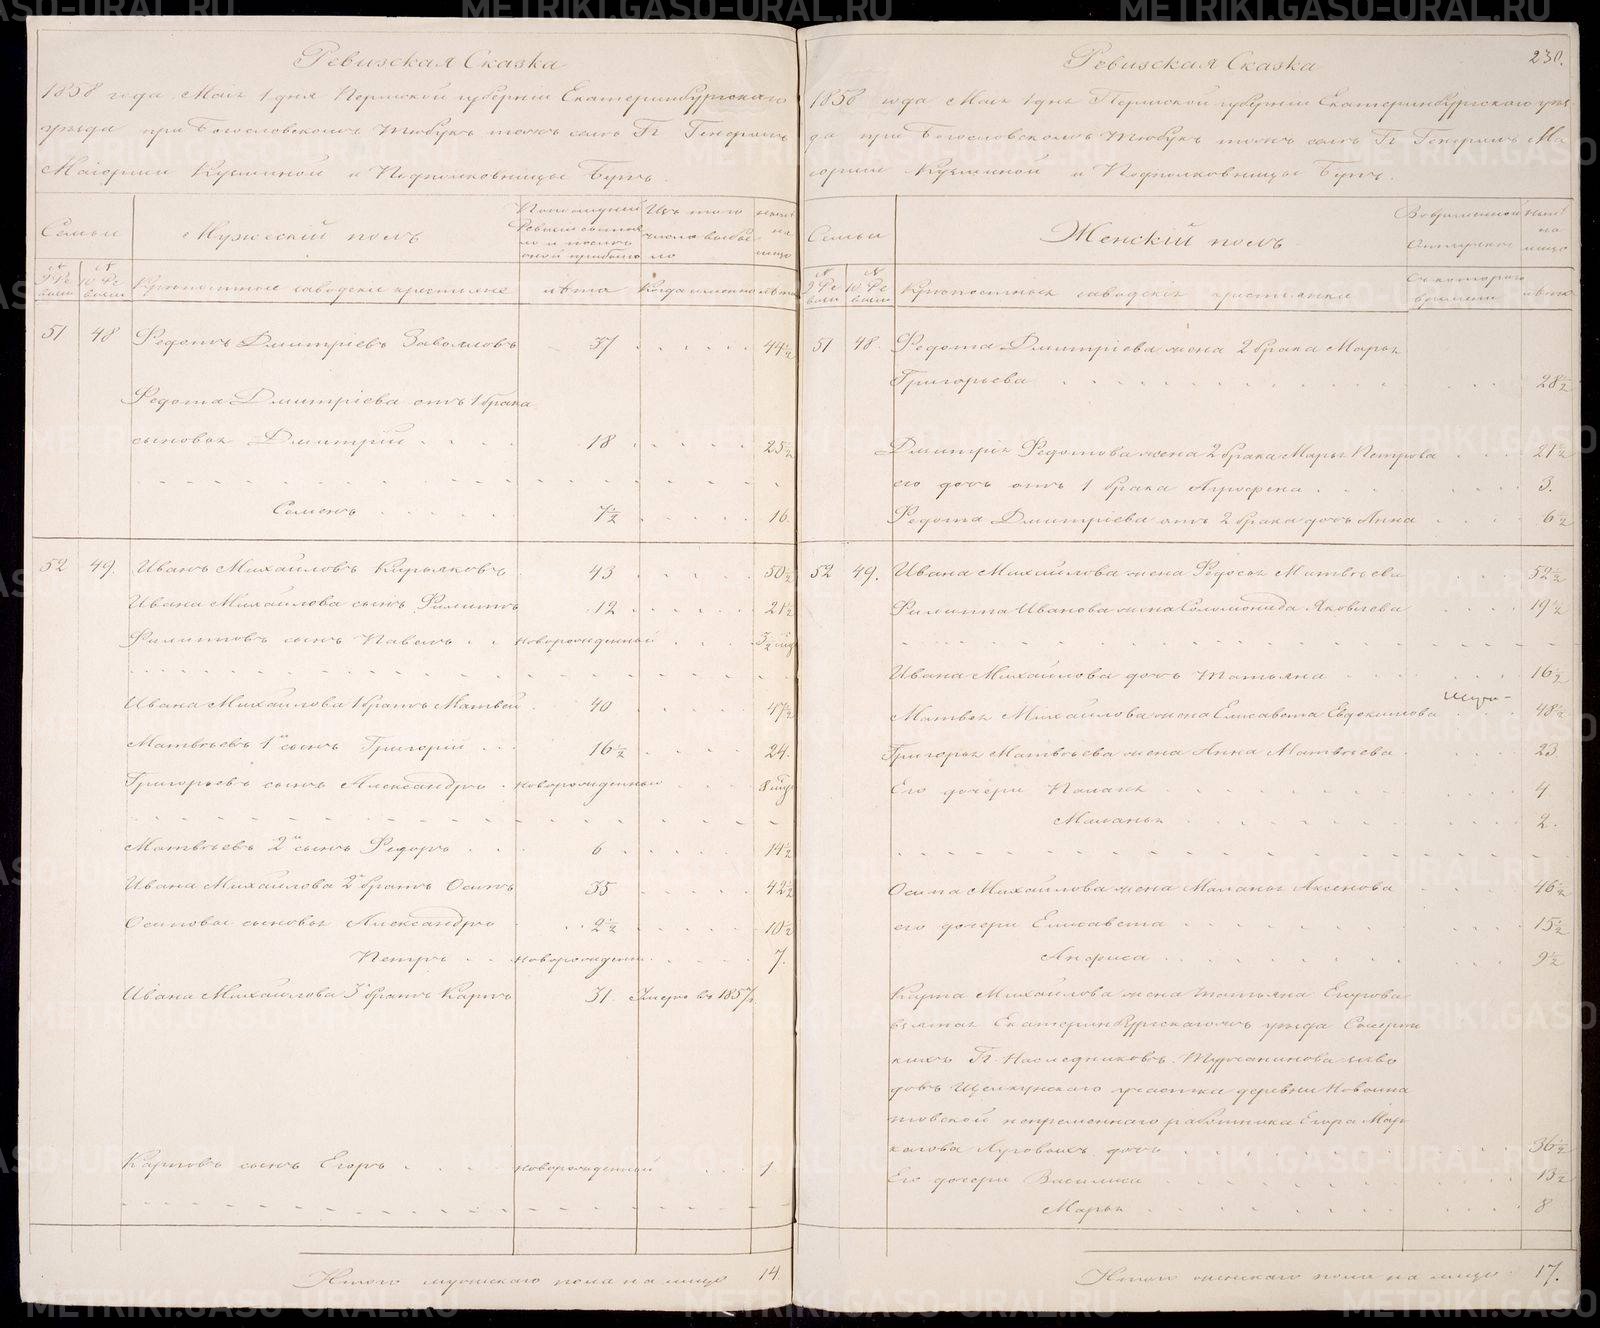 Ревизская Сказка
1858 года Маія 1 дня Пермской губерніи Екатеринбургскаго
уѣзда при Богословскомъ Тюбукъ тожъ селѣ Гг. Генералъ
Маіорши Кузьминой и Подполковницы Бутъ.
Семьи
Мужескій полъ
Изъ того числа выбыло
Нынѣ на лицо
№ 9 Ревизіи
№ 10 Ревизіи
Крѣпостные заводскіе крестьяне
лѣта
Когда именно
лѣта
51 48 Федотъ Дмитріевъ 37 44½
Федота Дмитріева отъ 1 брака
сыновья Дмитрій 18 25½
Семенъ 7½ 16
52 49. Иванъ Михайловъ Кирьяковъ 43 50½
Ивана Михайлова сынъ Филиппъ 12 21½
Филипповъ сынъ Павелъ новорожденный
Ивана Михайлова 1 братъ Матвей 40 47½
Матвѣевъ 1й сынъ Григорій 16½ 24.
Григорьевъ сынъ Александръ новорожденный 8
Матвѣевъ 2й сынъ Федоръ 6 14½
Ивана Михайлова 2й братъ Осипъ 35 42½
Осиповы сыновья Александръ 2½ 10½
Петръ новорожден. 7.
Ивана Михайлова 3й братъ Карпъ 31. Умеръ въ 1857г.
Карповъ сынъ Егоръ новорожденный 1
Итого мужескаго пола на лицо 14.
230.
Ревизская Сказка
1858 года Маія 1 дня Пермской губерніи Екатеринбургскаго уѣз-
да при Богословскомъ Тюбукъ тожъ селѣ Гг. Генералъ Ма-
іорши Кузьминой и Подполковницы Бутъ.
Семьи
Женскій полъ
Во временной отлучкѣ
Нынѣ на лицо
№ 9 Ревизіи
№ 10 Ревизіи
Крѣпостныя заводскія крестьянки
Съ котораго времени
лѣта
51 48. Федота Дмитріева жена 2 брака Марья
Григорьева 28½
Дмитрія Федотова жена 2 брака Марья Петрова 21½
его дочь отъ 1 брака Агрофена 3.
Федота Дмитріева отъ 2 брака дочь Анна 6½
52 49. Ивана Михайлова жена Федосья Матвѣева 52½
Филиппа Иванова жена Соломонида Яковлева 19½
Ивана Михайлова дочь Татьяна 16½
Матвея Михайлова жена Елисавета Евдокимова 48½
Григорья Матвѣева жена Анна Матвѣева 23
Его дочери Палагея 4
Маланья 2.
Осипа Михайлова жена Маланья Аксенова 46½
его дочери Елисавета 15½
Анфиса 9½
Карпа Михайлова жена Татьяна Егорова
взятая Екатеринбургскагожъ уѣзда Сысерт-
скихъ Гг. Наслѣдниковъ Турчанинова заво
довъ Щелкунскаго участка деревни Новоипа
товской непременнаго работника Егора Мар
дочь 36½
Его дочери Василиса 13½
Марья 8
Итого женскаго пола на лицо 17.
METRIKI.GASO-URAL.RU